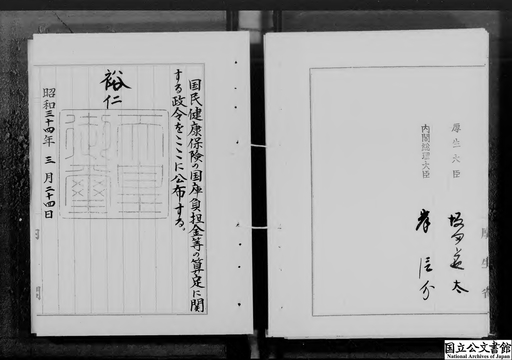 国民健康保険の国庫負担金等の算定に関
する政令をここに公布する。
裕仁
天皇
御璽
昭和三十四年三月二十四日
厚生大臣
坂田道太
内閣総理大臣
岸信介
厚生省
国立公文書館
National Archives of Japan